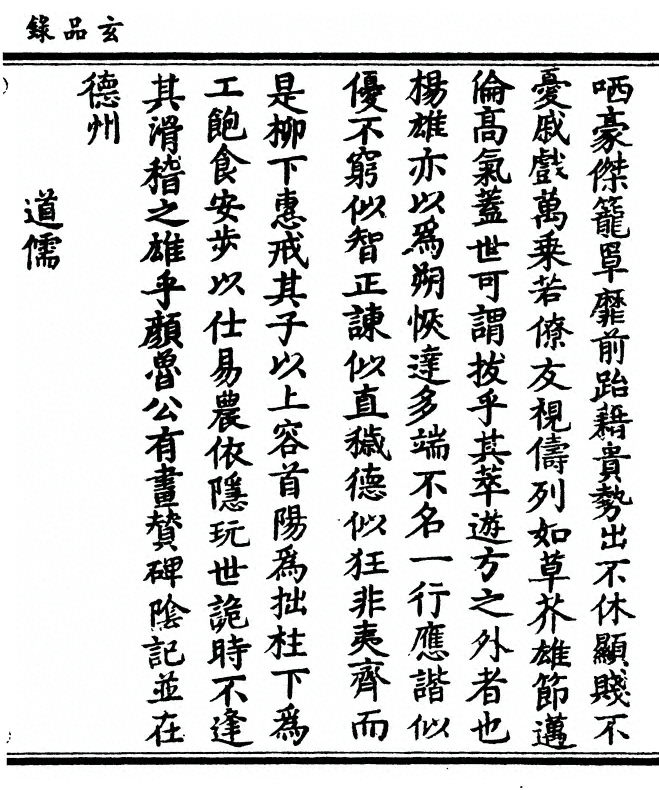 玄品錄
哂豪傑籠罩靡前跆藉貴勢出不休顯賤不
憂戚戲萬乘若僚友視儔列如草芥雄節邁
倫高氣蓋世可謂拔乎其萃遊方之外者也
楊雄亦以為朔恢達多端不名一行應諧似
優不窮似智正諫似直穢德似狂非夷齊而
是柳下惠戒其子以上容首陽為拙柱下為
工飽食安步以仕易農依隱玩世詭時不逢
其滑稽之雄乎顏魯公有畫贊碑陰記並在
德州
道儒